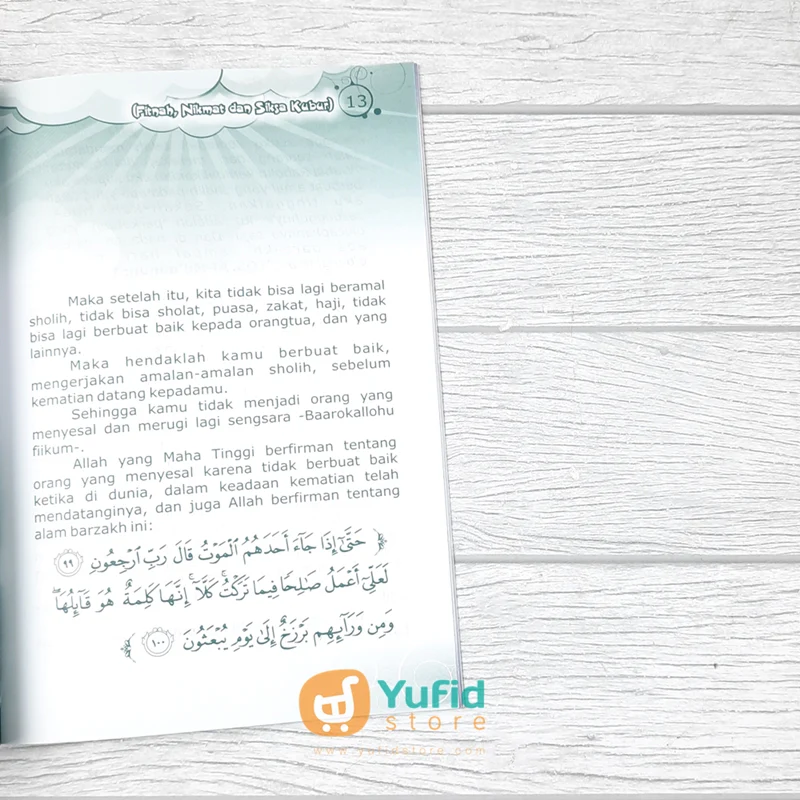 (Fitnah, Nikmat dan Siksa Kubur) 13
Maka setelah itu, kita tidak bisa lagi beramal
sholih, tidak bisa sholat, puasa, zakat, haji, tidak
bisa lagi berbuat baik kepada orangtua, dan yang
lainnya.
Maka hendaklah kamu berbuat baik,
mengerjakan amalan-amalan sholih, sebelum
kematian datang kepadamu.
Sehingga kamu tidak menjadi orang yang
menyesal dan merugi lagi sengsara -Baarokallohu
fiikum-.
Allah yang Maha Tinggi berfirman tentang
orang yang menyesal karena tidak berbuat baik
ketika di dunia, dalam keadaan kematian telah
mendatanginya, dan juga Allah berfirman tentang
alam barzakh ini:
﴿ حَتَّىٰٓ إِذَا جَآءَ أَحَدَهُمُ ٱلْمَوْتُ قَالَ رَبِّ ٱرْجِعُونِ ٩٩
لَعَلِّىٓ أَعْمَلُ صَٰلِحًا فِيمَا تَرَكْتُ ۚ كَلَّآ ۚ إِنَّهَا كَلِمَةٌ هُوَ قَآئِلُهَا ۖ
وَمِن وَرَآئِهِم بَرْزَخٌ إِلَىٰ يَوْمِ يُبْعَثُونَ ١٠٠ ﴾
Yufid
store
www.yufidstore.com